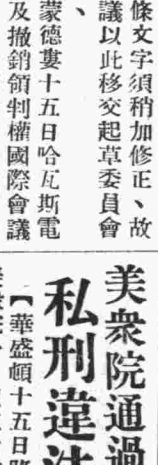 條文字須稍加修正、故
議以此移交起草委員會
、
蒙德婁十五日哈瓦斯電
及撤銷領判權國際會議
美衆院通過
私刑違法
【華盛頓十五日路